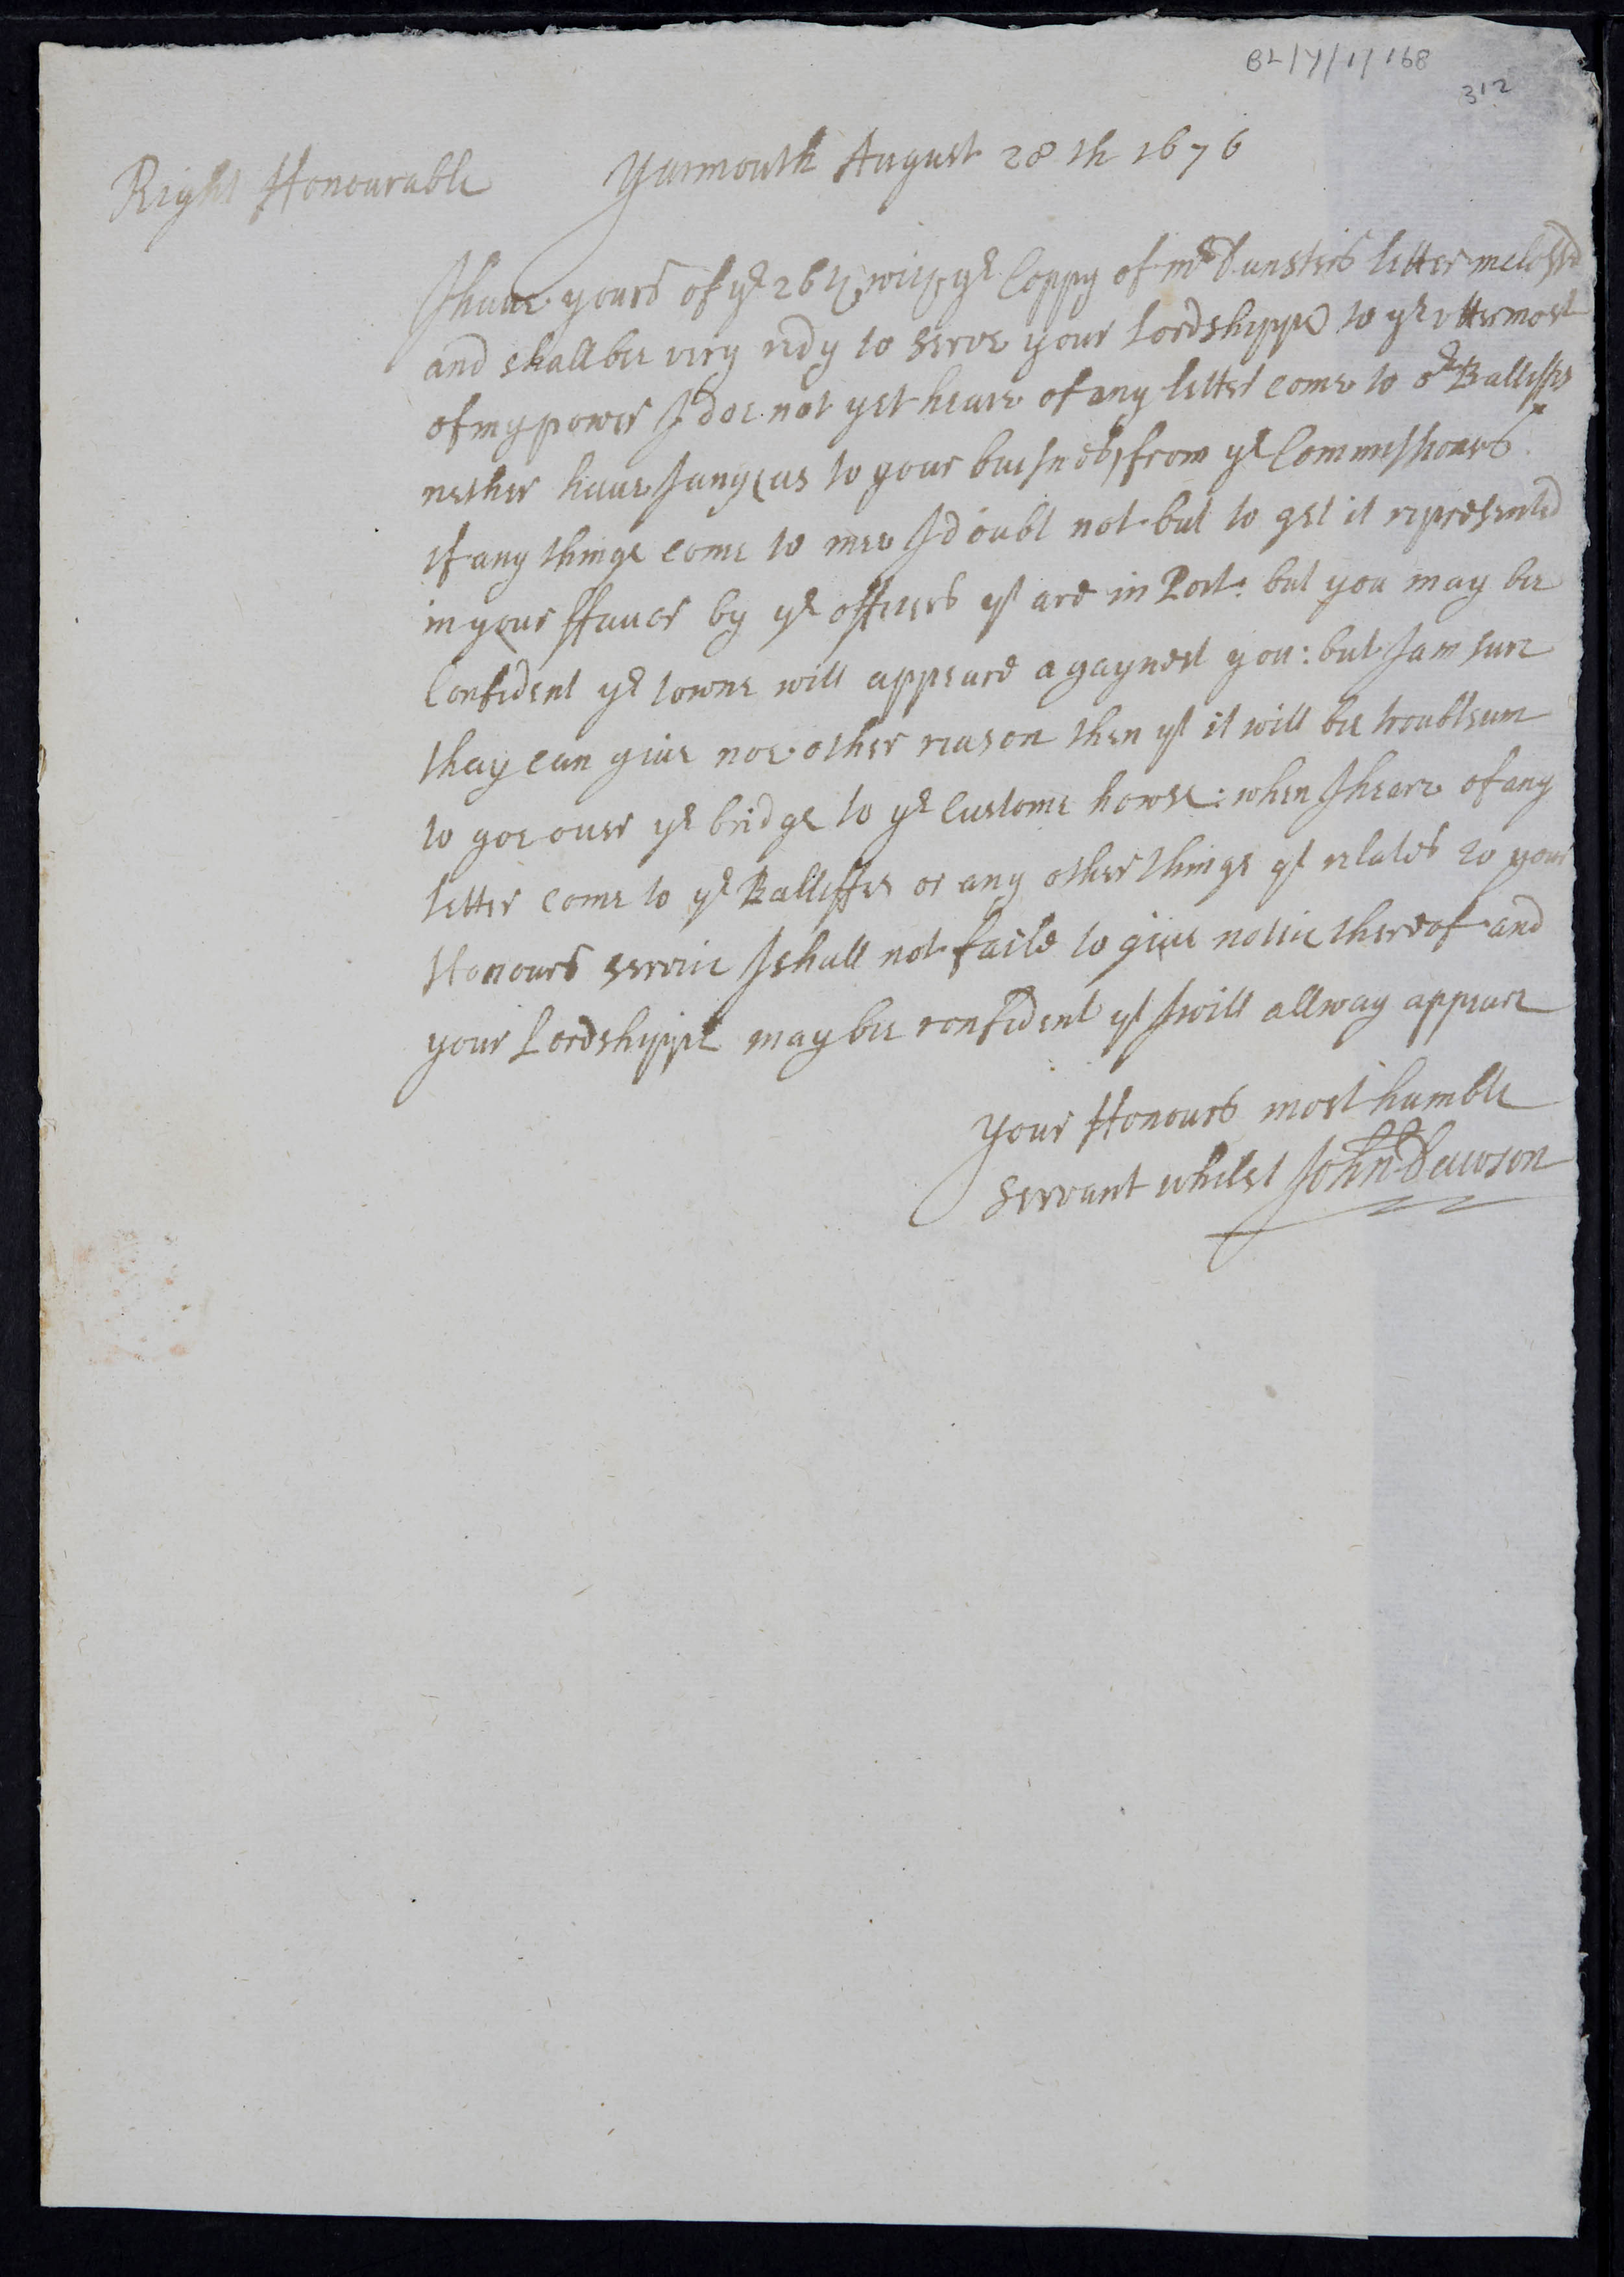 BL/Y/1/168
312
Right Honourable Yarmouth August 28th 1676
I haue yours of ye 26th with ye Coppy of mr Dunsters letter inclossed
and shall bee very redy to serve your Lordshippe to ye vttermost
of my power I doe not yet heare of any letter come to or Balliffes
nether haue I any (as to your buisnes) from ye Commishoners
if any thinge come to mee I doubt not but to get it represented
in your ffauor by ye officers yt are in Port: but you may bee
Confident ye towne will appeare agaynest you: but I am sure
thay can giue noe other reason then yt it will bee troublsum
to goe ouer ye bridge to ye Custome howse: when I heare of any
letter come to ye Balliffes or any other thinge yt relates to your
Honours servic I shall not faile to giue notic thereof and
your Lordshippe may bee confident yt I will allway appeare
your Honours most humble
servant whilst John Dawson